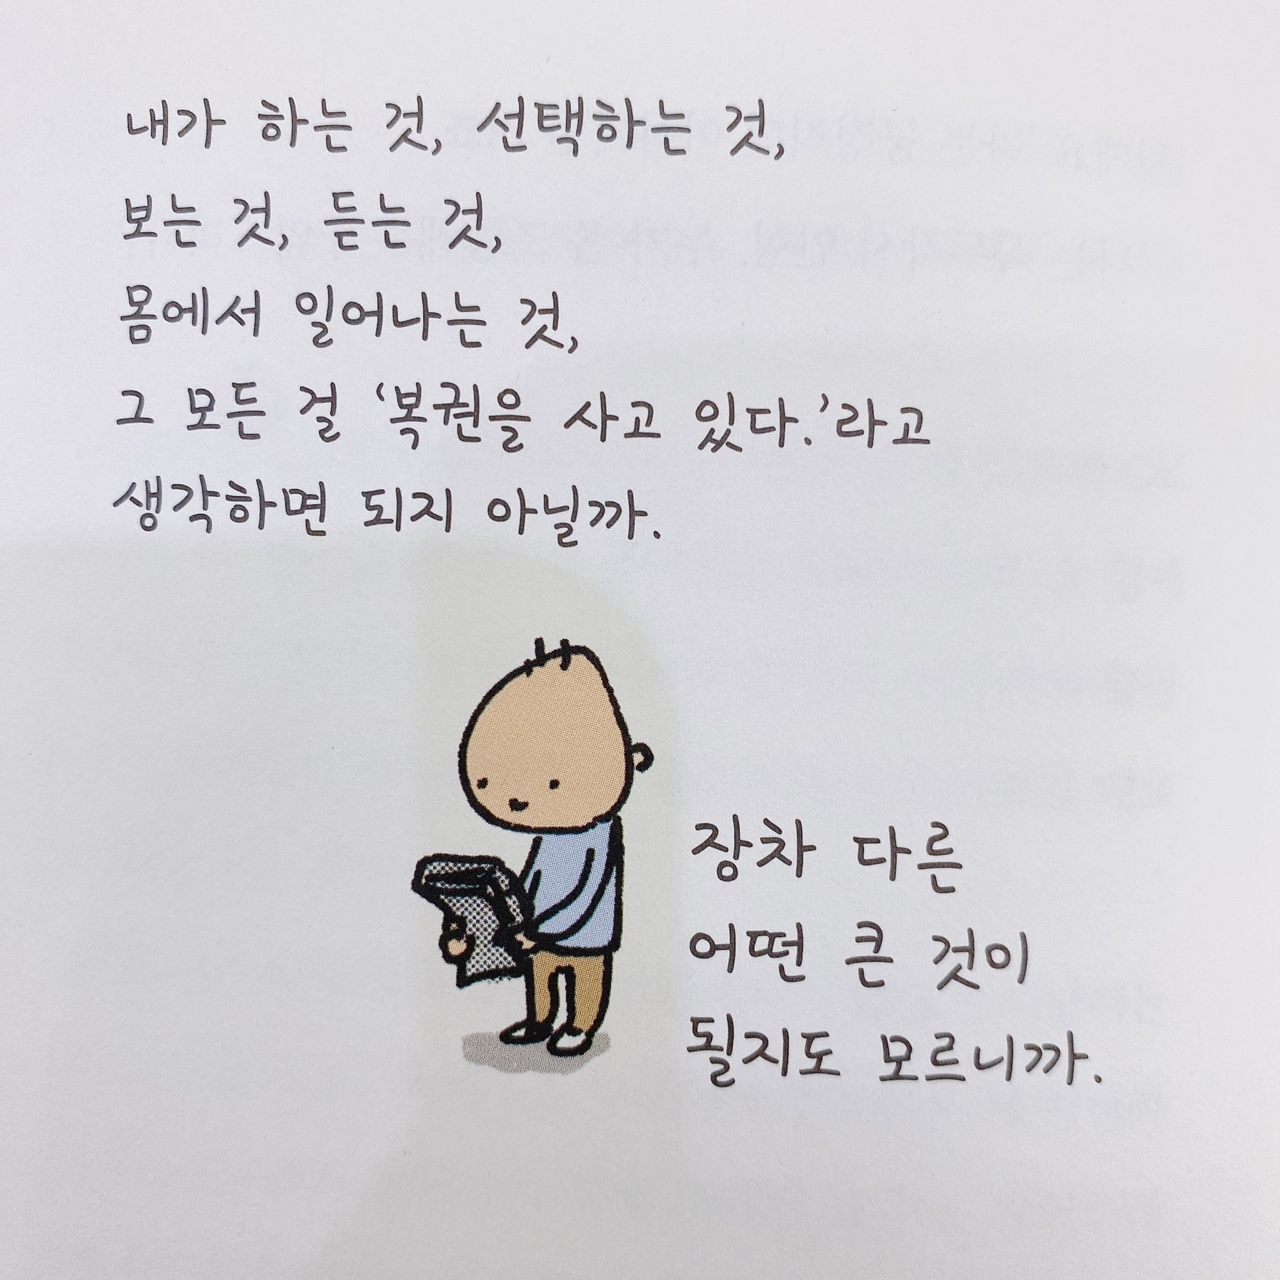 내가 하는 것, 선택하는 것,
보는 것, 듣는 것,
몸에서 일어나는 것,
그 모든 걸 ‘복권을 사고 있다.’라고
생각하면 되지 아닐까.
장차 다른
어떤 큰 것이
될지도 모르니까.